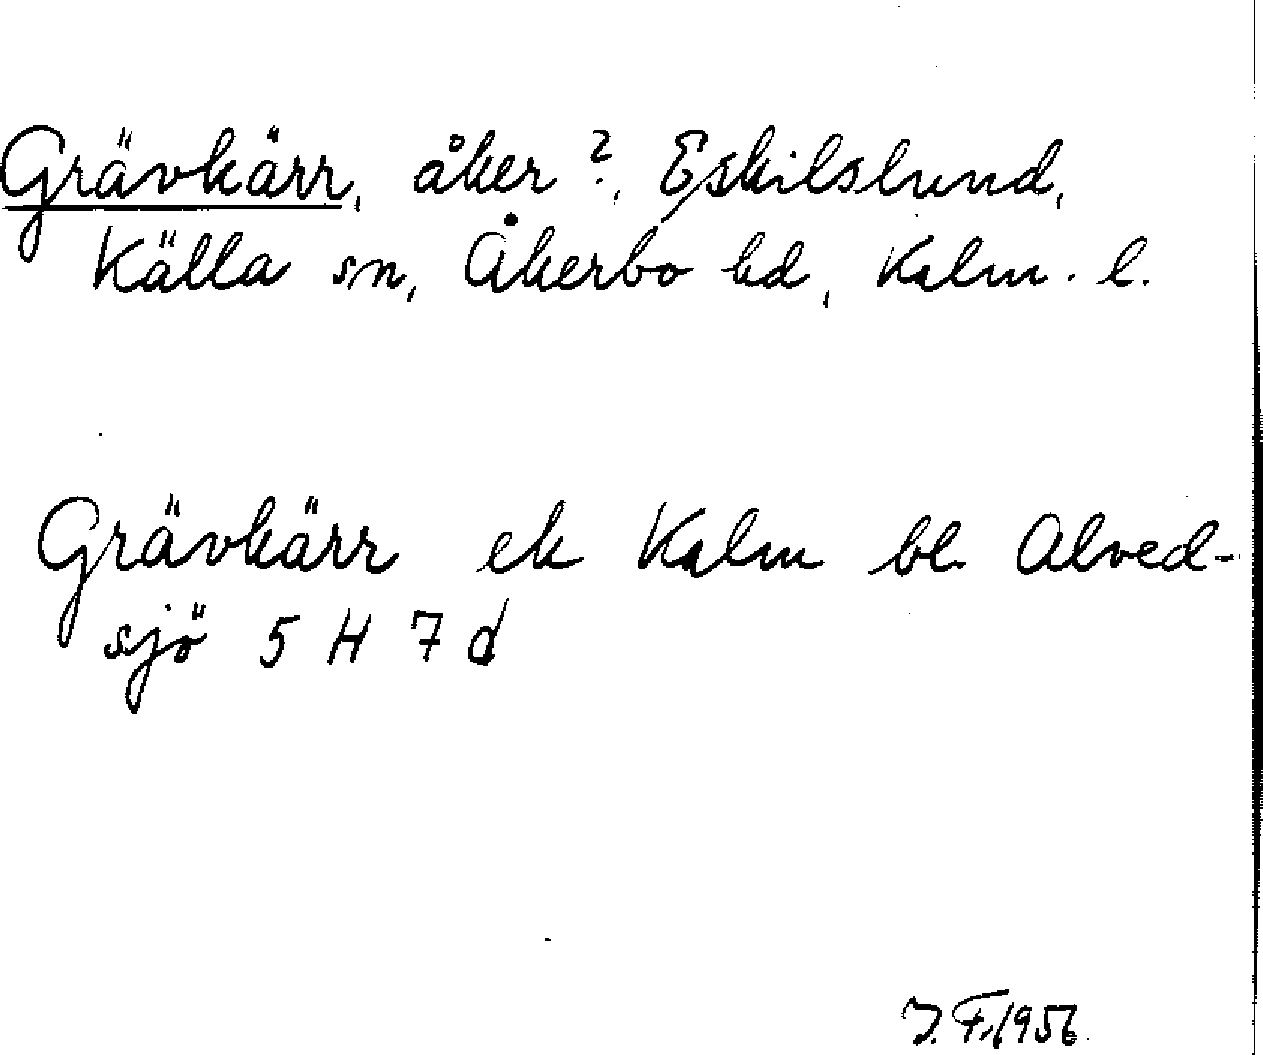 Grävkärr, åker?, Eskilslund,
Källa sn, Åkerbo hd, Kalm. l.
Grävkärr ek Kalm bl. Alved-
sjö 5 H 7 d
J. F. 1956.